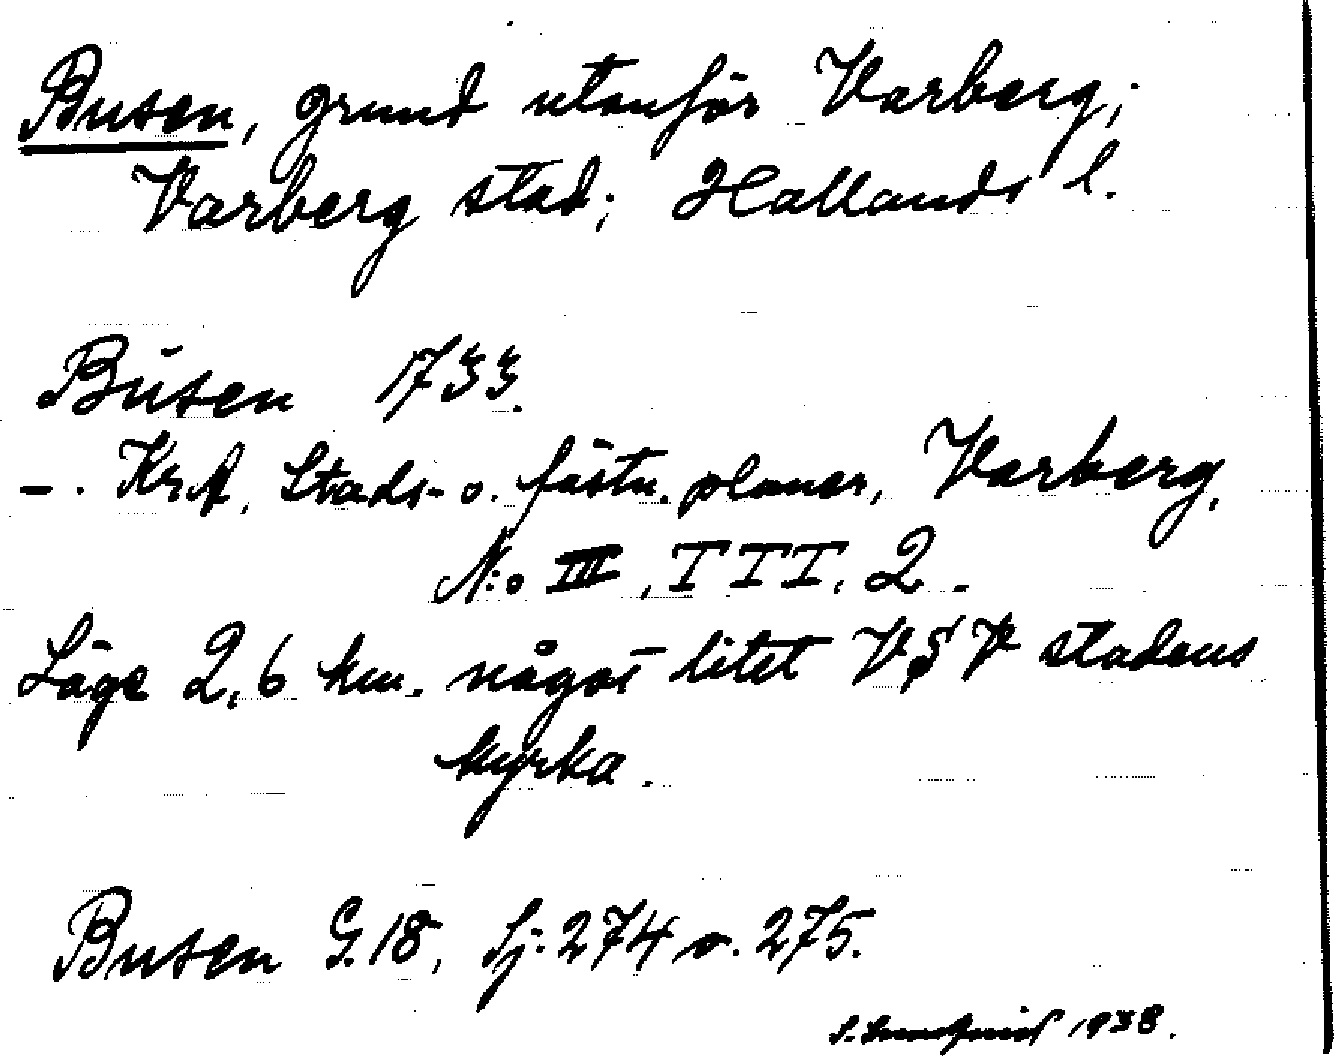 Busen, grund utanför Varberg;
Varberg stad; Hallands l.
Busen 1733.
-. Kr.A, Stads- o. fästn. planer, Varberg,
N:o III, TTT, 2.
Läge 2,6 km. något litet VSV stadens
kyrka.
Busen G.18, Sj: 274 o. 275.
1938.